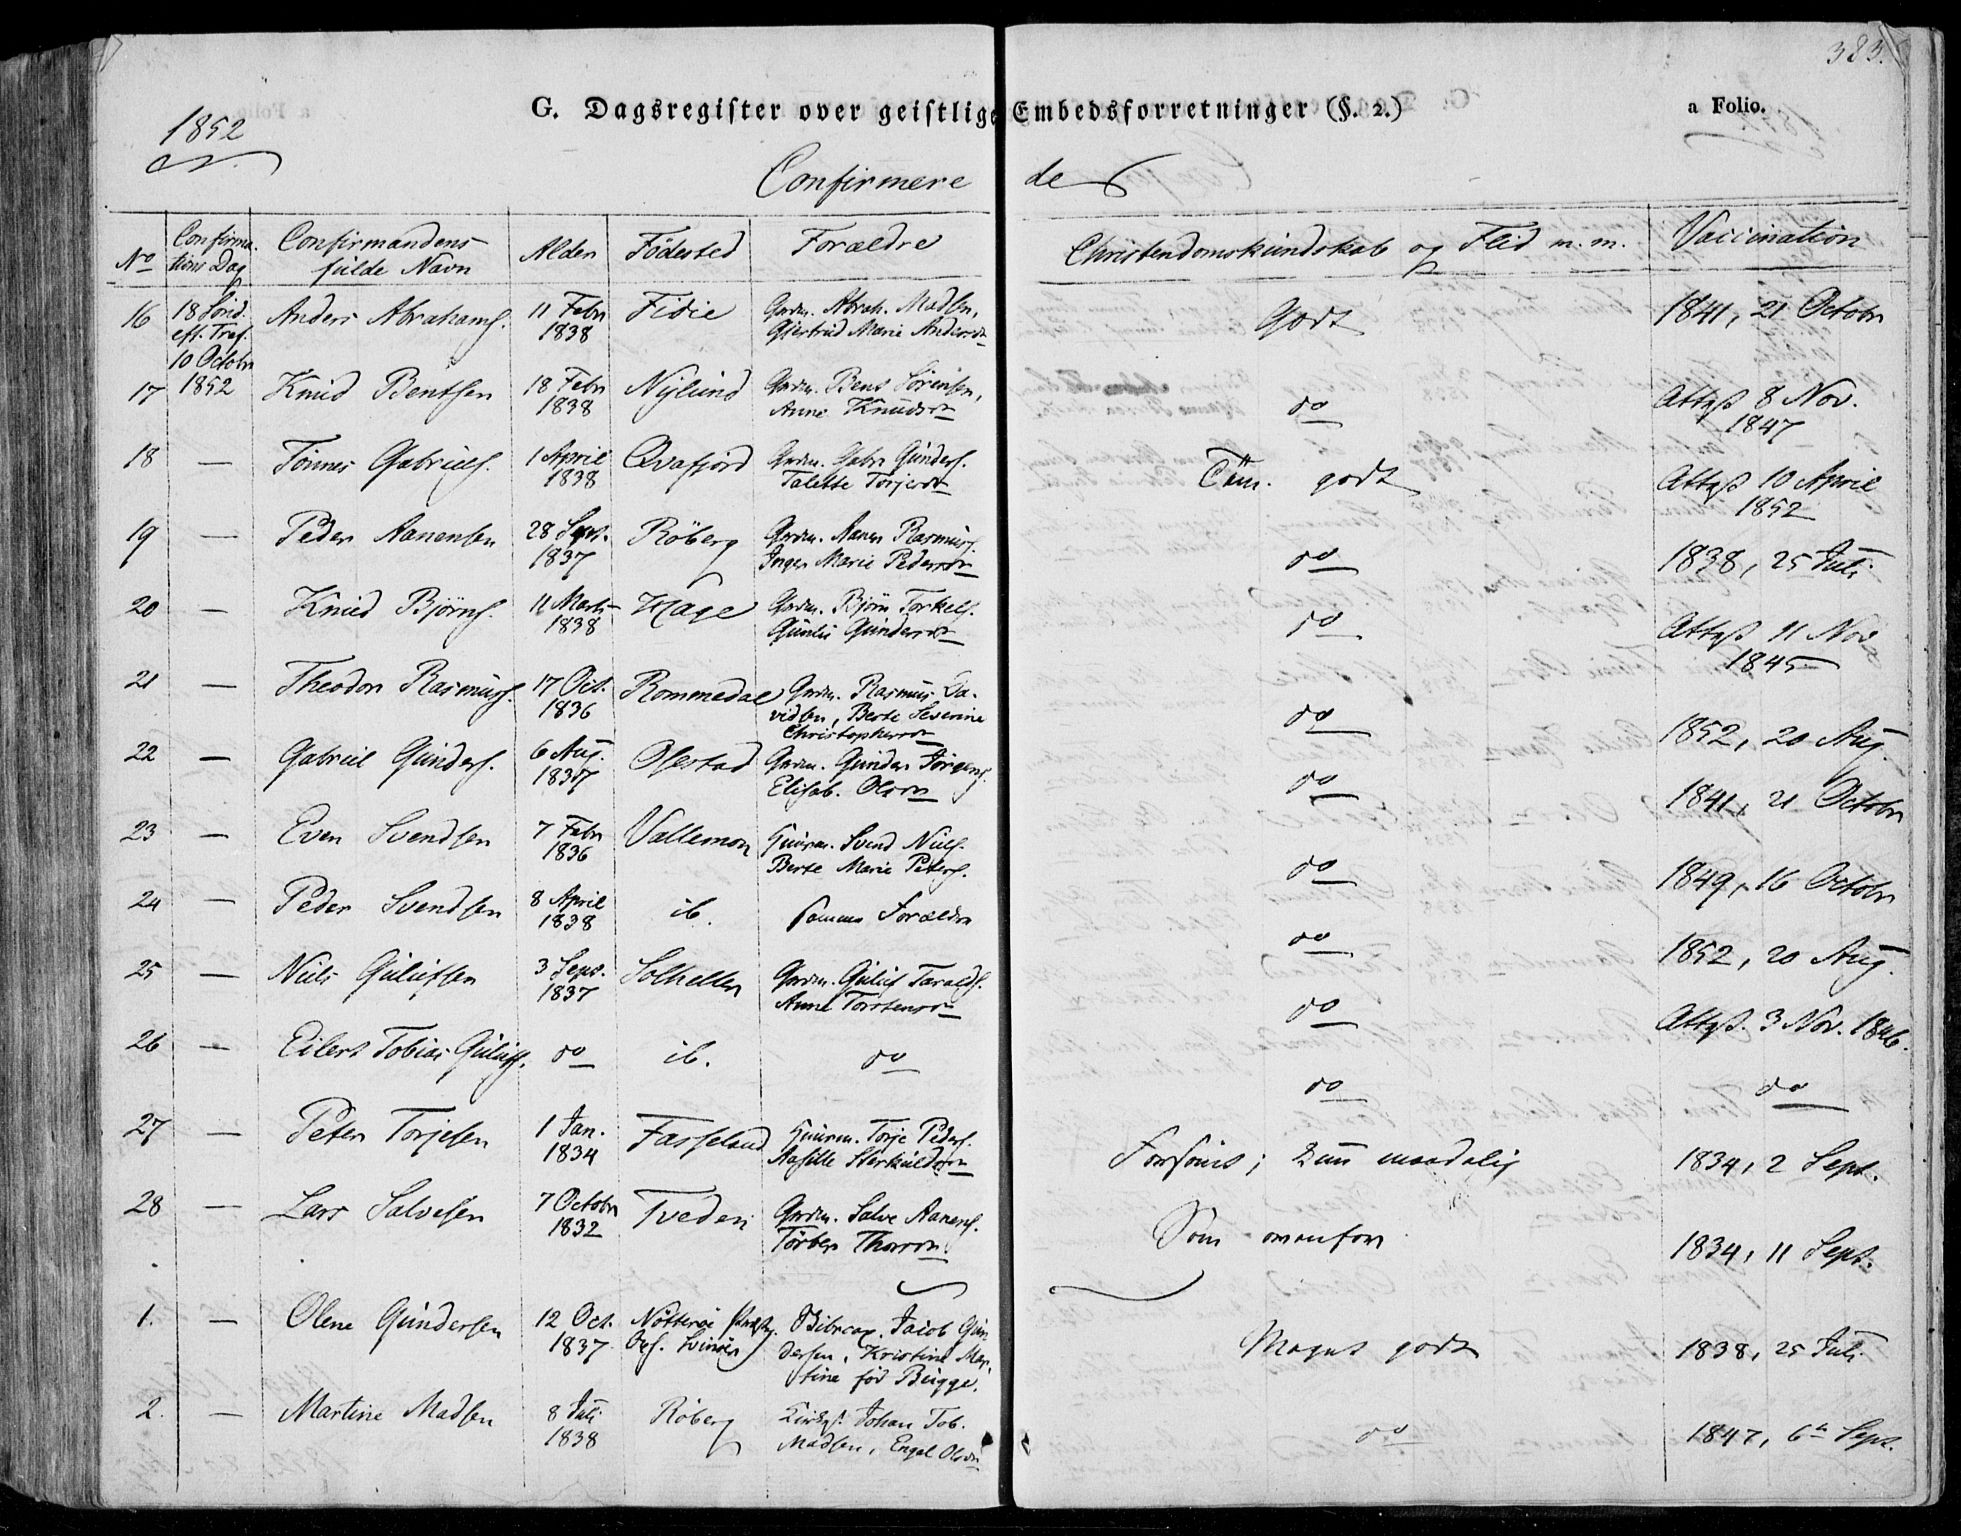 383.
G. Dagsregister over geistlige Embedsforretninger (§. 2.)
a Folio.
1852
Confirmerede
No
Confirmations Dag
Confirmandens fulde Navn
Alder
Födested
Forældre
Christendomskundskab og Flid m. m.
Vaccination
16 18 Sönd. eft. Tref. 10 Octobr 1852 Anders Abrahams. 11 Febr 1838 Fidie Grdm. Abrah. Madsen, Gjertrud Marie Andersdr Godt 1841, 21 Octobr
17 Knud Bentsen 18 Febr 1838 Nylund Grdm. Bent Sörensen, Anne Knudsdr do Attest 8 Nov. 1847
18 — Tönnes Gabriels. 1 April 1838 Qvafjord Grdm. Gabr Gunders. Talette Torjersdr Tem. godt Attest 10 April 1852
19 — Peder Aanensen 28 Sept. 1837 Röberg Grdm. Aanen Rasmus. Inger Marie Pedersdr do 1838, 25 Juli
20 — Knud Björns. 11 Marts 1838 Hage Grdm. Björn Torkels. Gunlu Gundersdr do Attest 11 Nov 1845
21 — Theodor Rasmus. 17 Oct. 1836 Rommedal Grdm. Rasmus Davidsen, Berte Severine Christophersdr do 1852, 20 Aug.
22 — Gabriel Gunders. 6 Aug. 1837 Ogestad Grdm. Gunder Jörgens. Elisab. Olsdr do 1841, 21 Octobr
23 — Even Svendsen 7 Febr 1836 Vallemon Huusm. Svend Niels. Berte Marie Peters. do 1849, 16 Octobr
24 — Peder Svendsen 8 April 1838 ib. samme Forældre do 1852, 20 Aug.
25 — Niels Gulufsen 3 Sept. 1837 Solhellen Grdm. Guluf Taralds. Anne Torstensdr do Attest. 3 Nov. 1846.
26 — Eilert Tobias Gulufs. do ib. do do do
27 — Peter Torjesen 1 Jan. 1834 Fasseland Huusm. Torje Peders. Aasille Sterkuldsdr Forsömt; kun maadelig 1834, 2 Sept.
28 — Lars Salvesen 7 Octobr 1832 Tveden Grdm. Salve Aanens. Torber Thorsdr. Som ovenfor 1834, 11 Sept.
1. — Olene Gundersen 12 Oct. 1837 Nötteröe Svinör Jacob Gundersen, Kristine Martine fød Bugge. Meget godt 1838, 25 Juli
2. — Martine Madsen 8 Juli 1838 Röberg Johan Tob. Madsen, Engel Olsdr do 1847, 6te Sept.